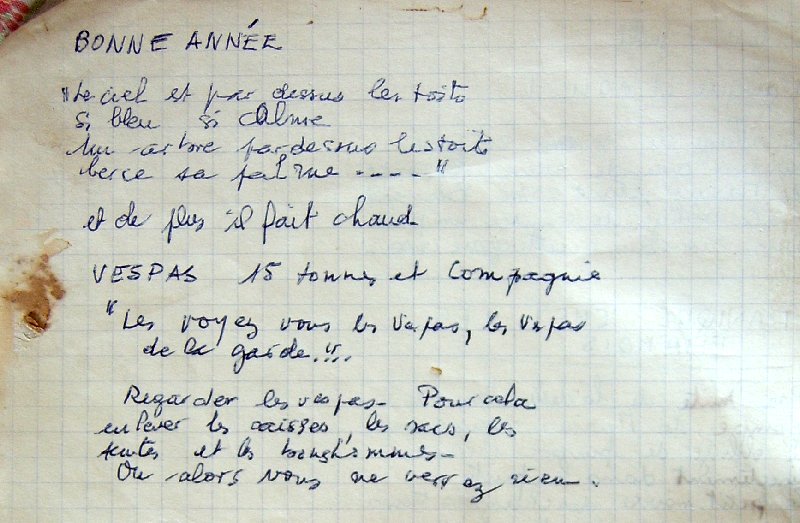 BONNE ANNÉE
"Le ciel est par dessus les toits
si bleu si calme
Un arbre par dessus les toits
berce sa palme ----"
et de plus il fait chaud.
VESPAS 15 tonnes et Compagnie
"Les voyez vous les Vespas, les Vespas
de la garde."..
Regarder les vespas - Pour cela
enlever les caisses, les sacs, les
tentes et les bonshommes -
Ou alors vous ne verrez rien.